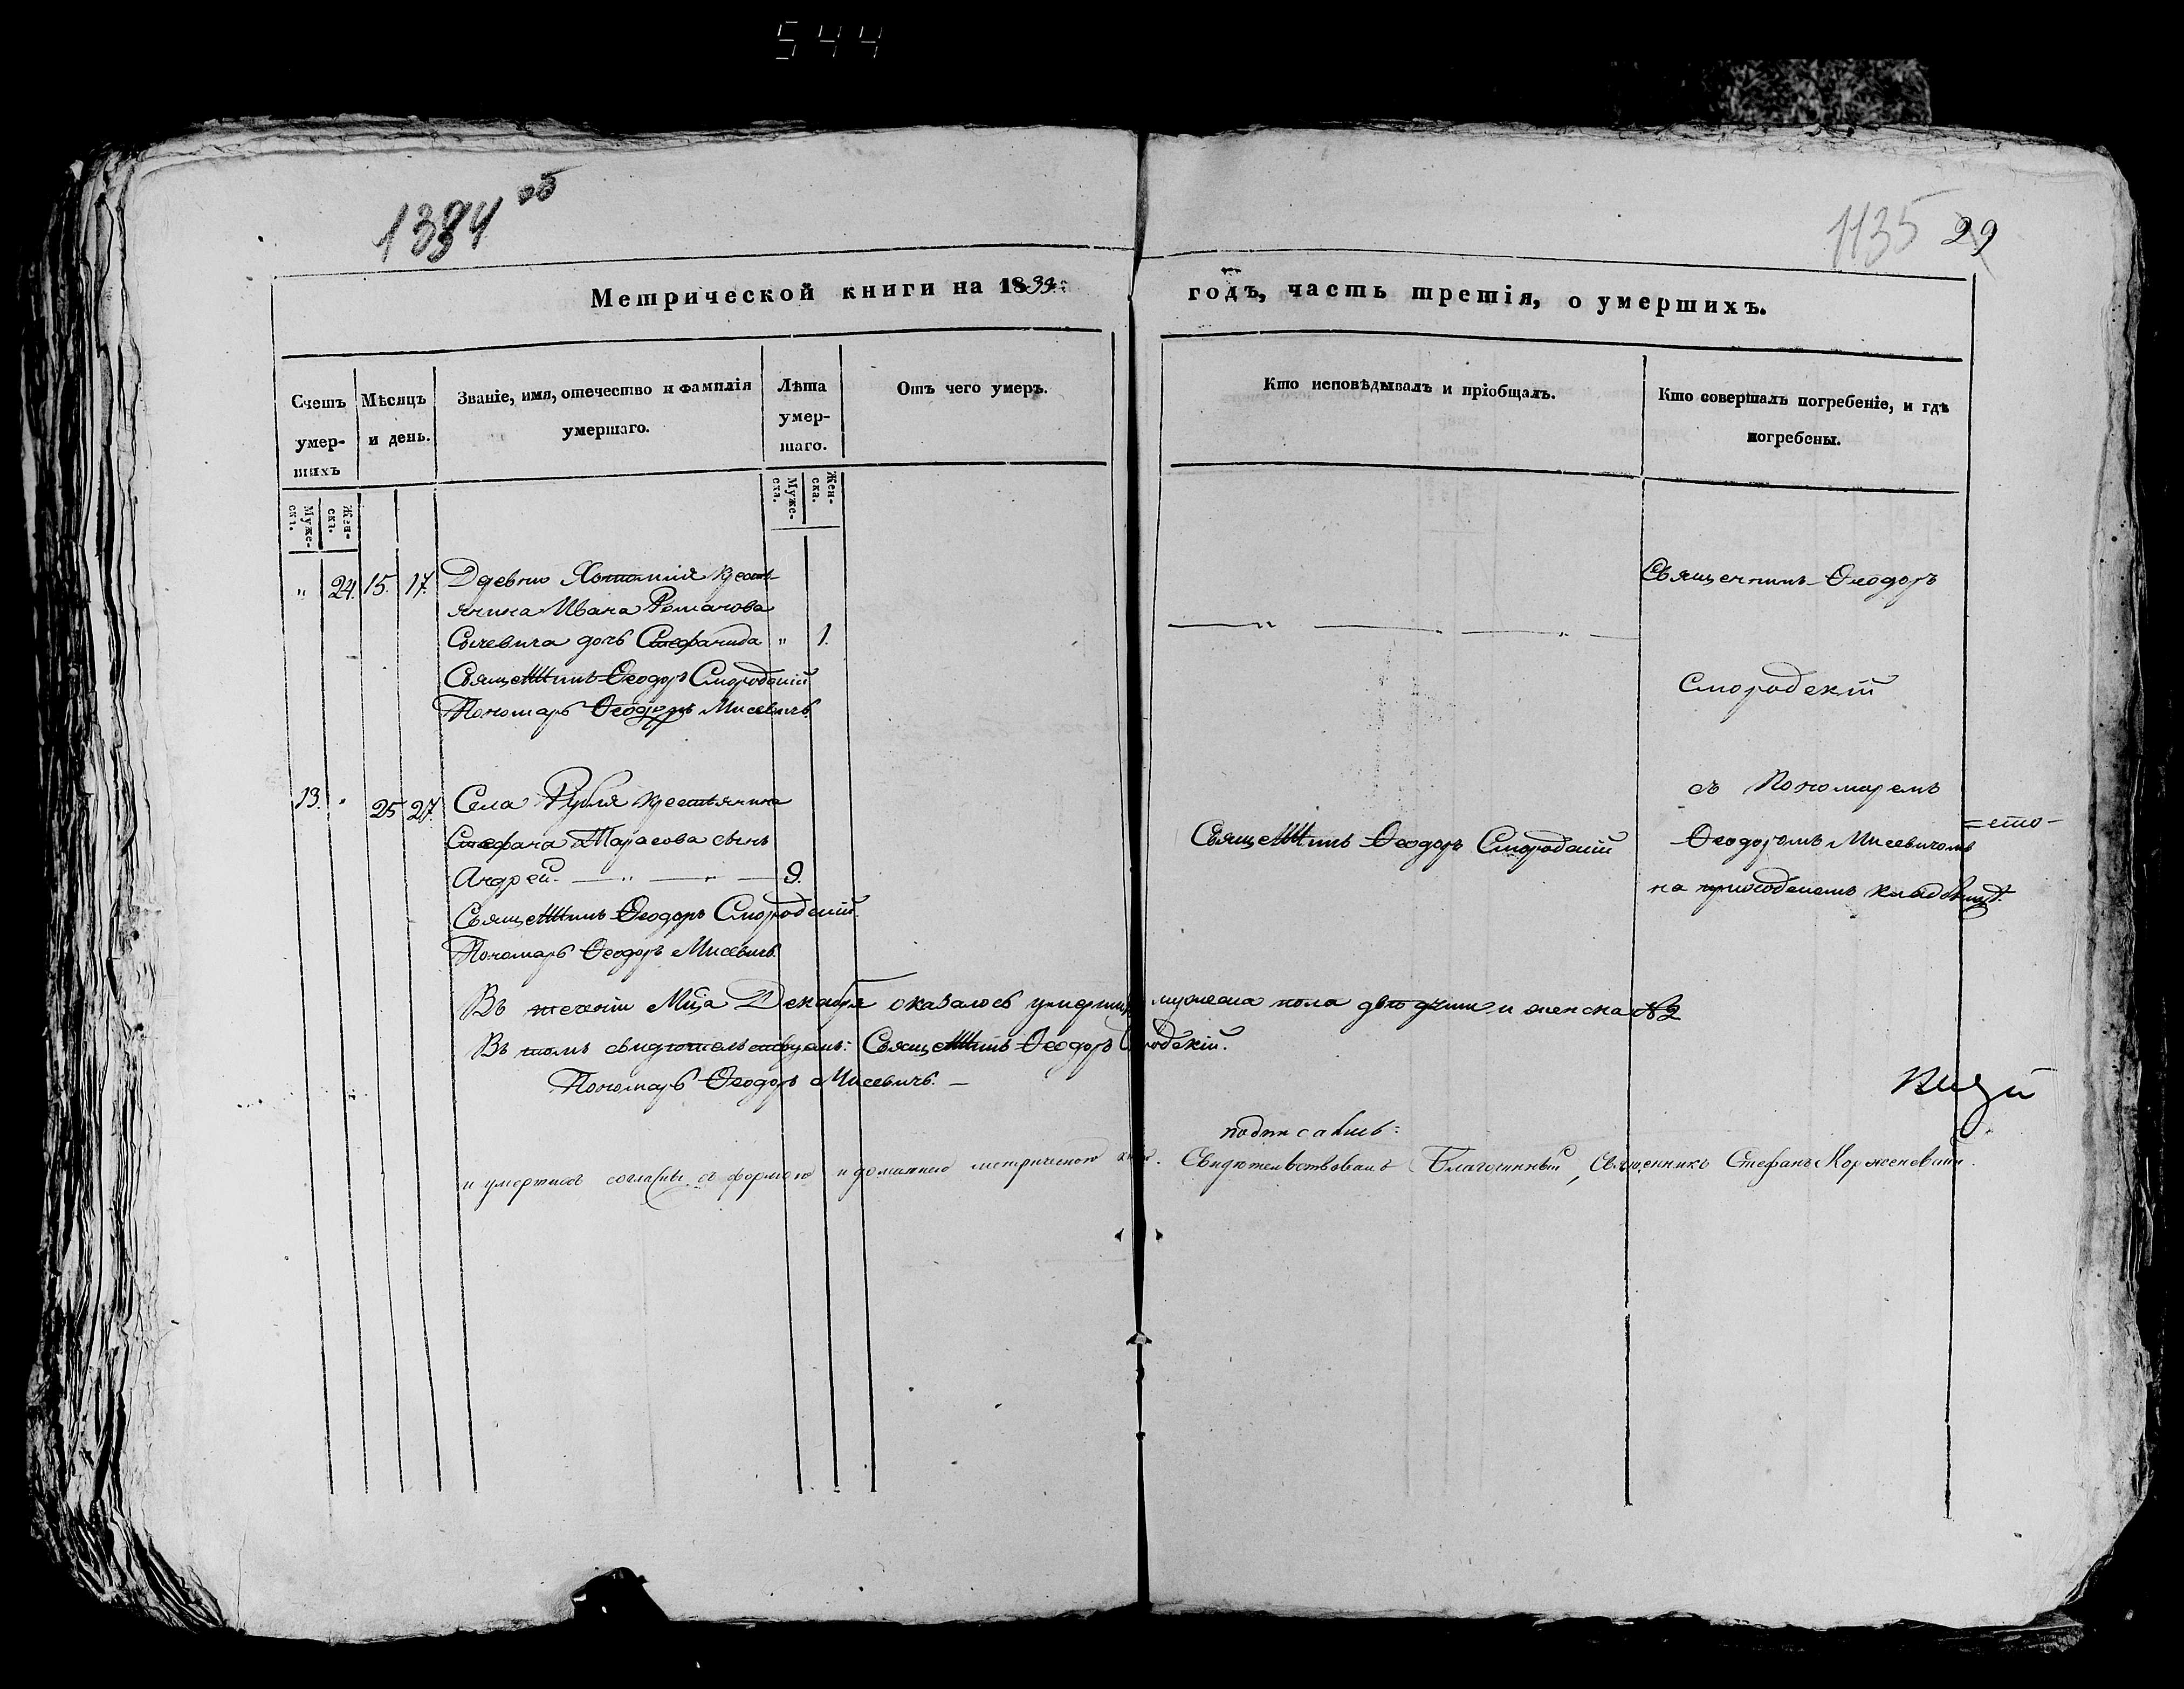 544
1384 об
1135 29
Метрической книги на 1839: годъ, часть третія, о умершихъ.
Счетъ умер-шихъ
Мѣсяцъ и день.
Званіе, имя, отечество и фамилія умершаго.
Лѣта умер-шаго.
Отъ чего умеръ.
Кто исповѣдывалъ и пріобщалъ.
Кто совершалъ погребеніе, и гдѣ погребены.
Муже-ска.
Жен-ска.
Муже-ска.
Жен-ска.
" 24. 15. 17. Деревни крест-
янина Ивана Романова
Сычевича дочь Стефанида " 1.
Священникъ Ѳеодоръ Смородскій
Пономарь Ѳеодоръ Мисевичъ.
Священникъ Ѳеодоръ
Смородскій
13. " 25 27. Села Рубля крестьянина
Стефана Тарасова сынъ
Андрей. — " — " — 9.
Священникъ Ѳеодоръ Смородскій
Пономарь Ѳеодоръ Мисевичъ.
Священникъ Ѳеодоръ Смородскій
съ Пономаремъ
Ѳеодоромъ Мисевичомъ
на приходскомъ кладбищѣ.
Въ теченіи Мца Декабря оказалось умершихъ мужеска пола и женска 2
Въ томъ свидѣтельствуемъ: Священникъ Ѳеодоръ Смородскій.
Пономарь Ѳеодоръ Мисевичъ. —
подписались:
и умершихъ согласны съ формою и домашнею метрическою Свидѣтельствовалъ Благочинный, Священникъ Стефанъ Корженевскій.